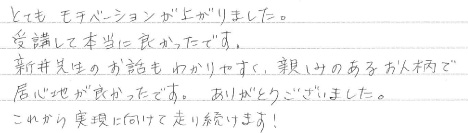 とても モチベーションが上がりました。
受講して本当に良かったです。
新井先生のお話もわかりやすく、親しみのあるお人柄で
居心地が良かったです。 ありがとうございました。
これから実現に向けて走り続けます!